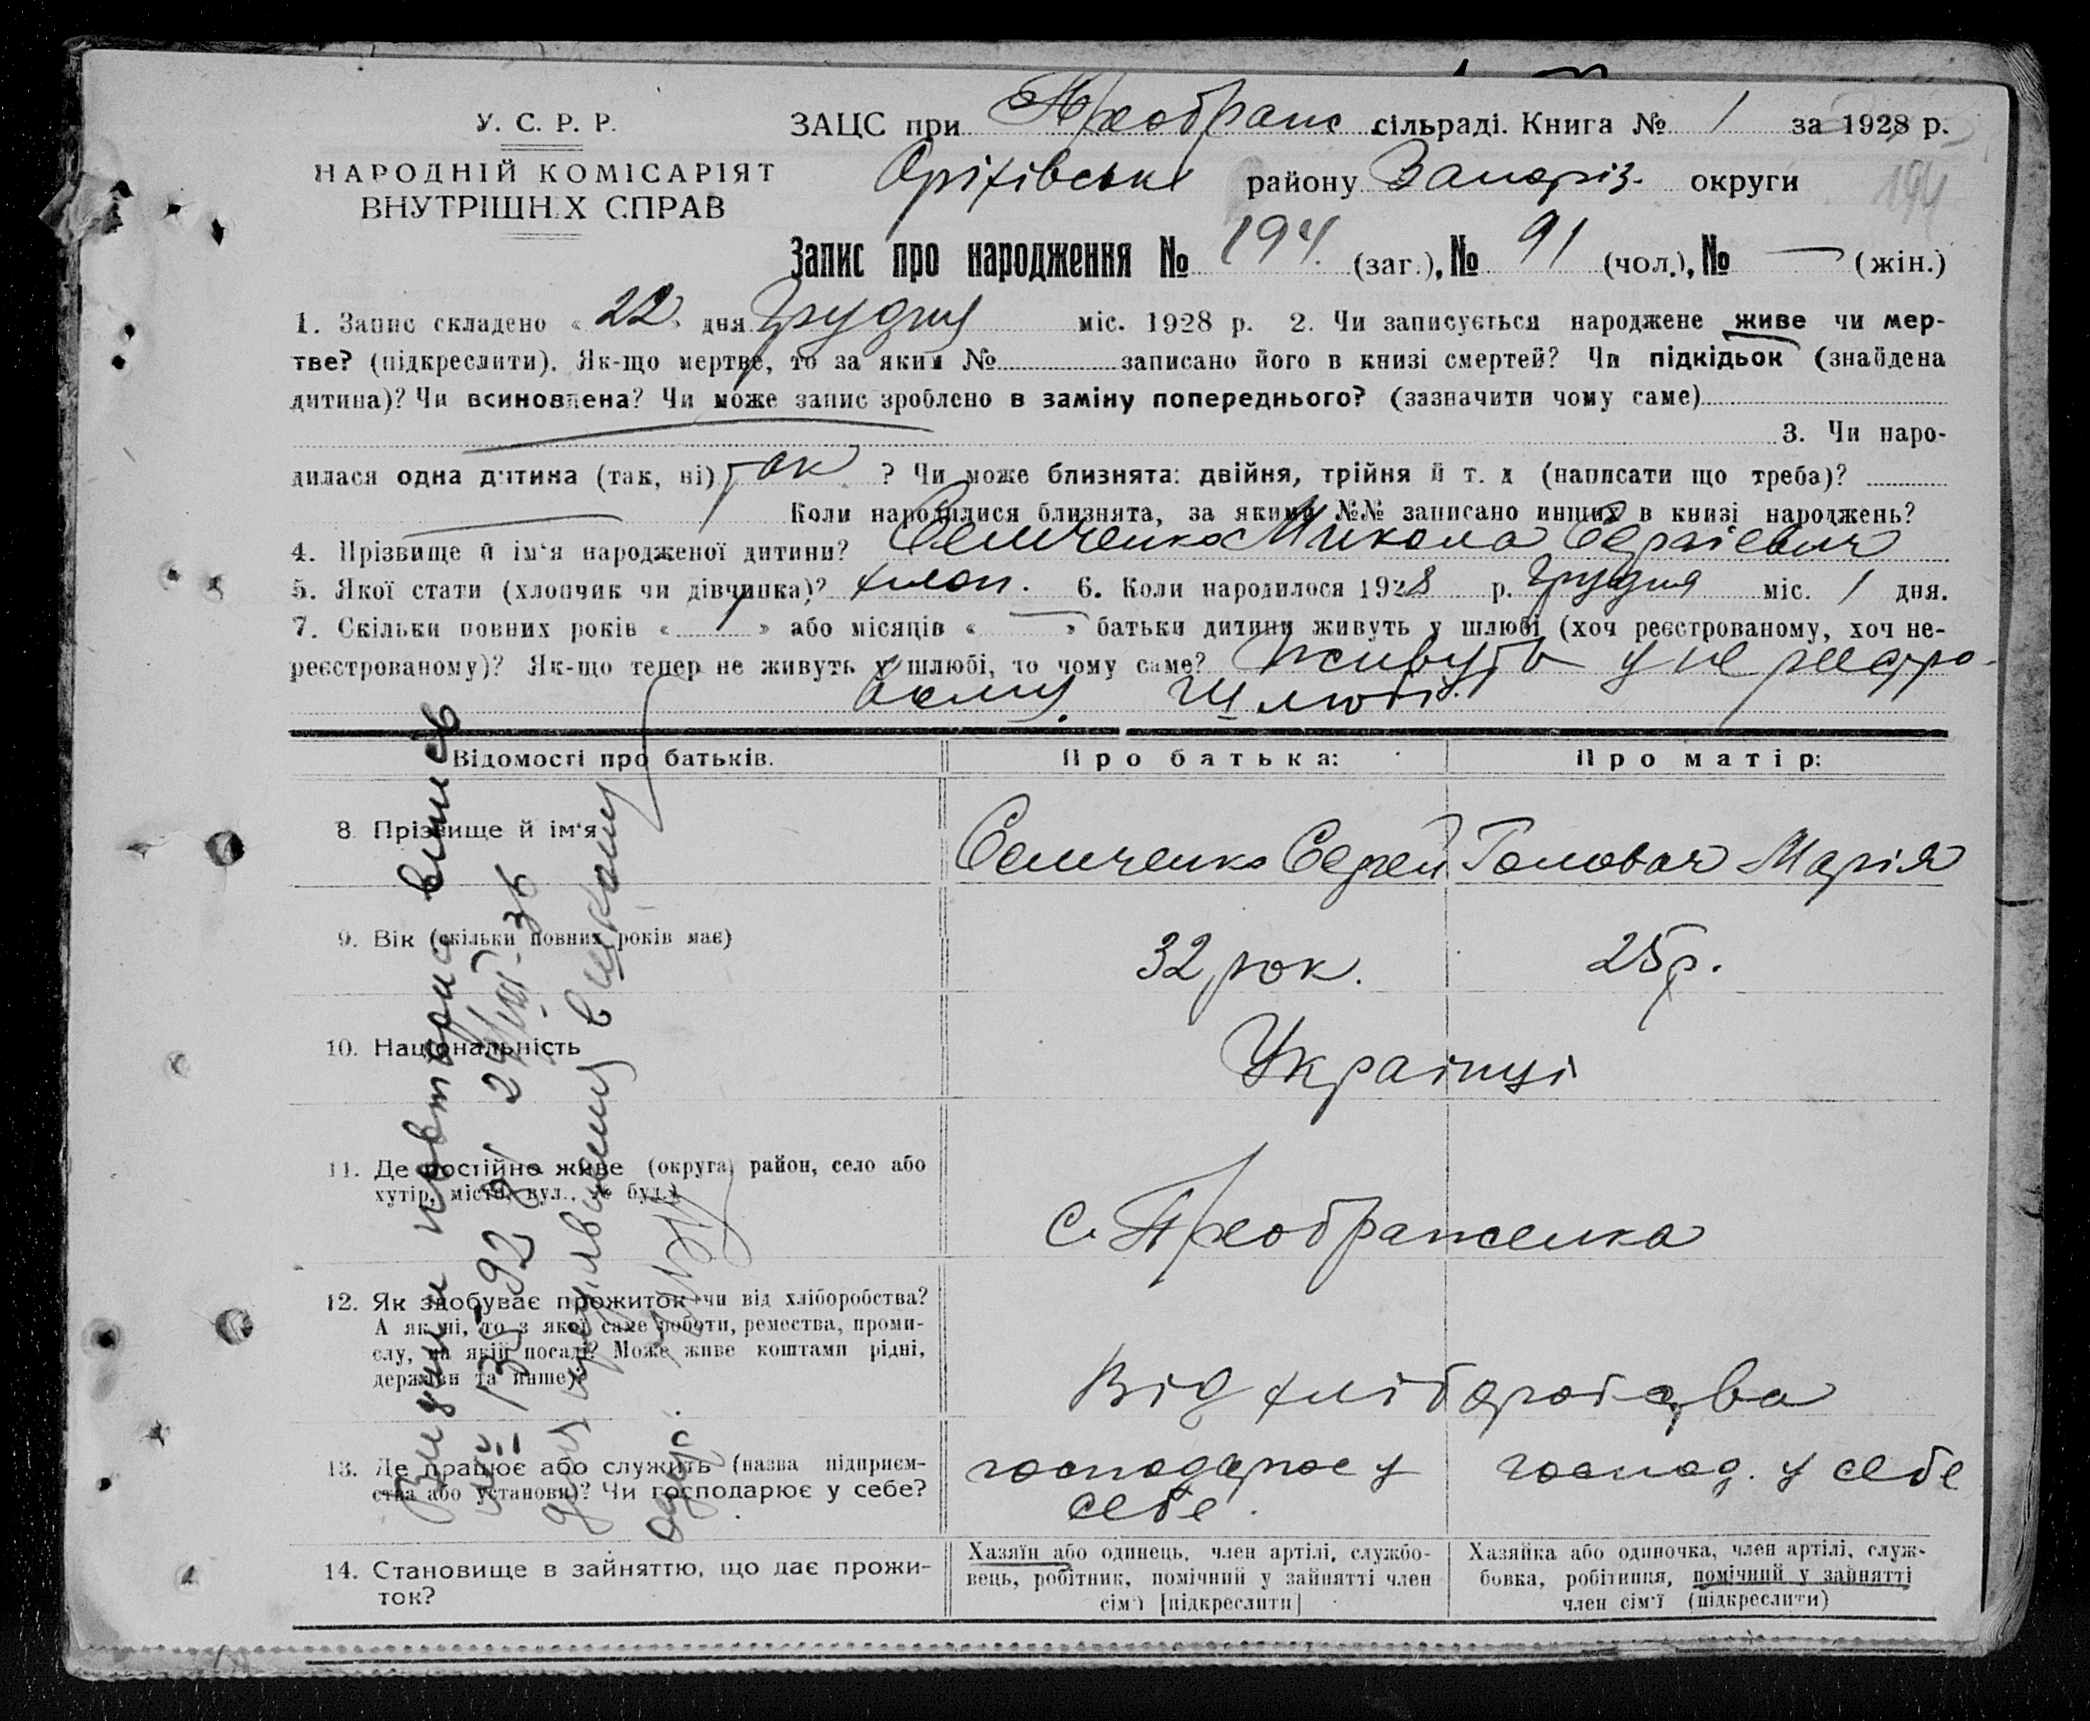 У. С. Р. Р.
НАРОДНІЙ КОМІСАРІЯТ
ВНУТРІШНІХ СПРАВ
ЗАЦС при Преображ сільраді. Книга № 1 за 1928 р.
Оріхівськ району Запоріз. округи
194
Запис про народження № 194 (заг.), № 91 (чол.), № — (жін.)
1. Запис складено « 22 » дня Грудня міс. 1928 р. 2. Чи записується народжене живе чи мер-
тве? (підкреслити). Як-що мертве, то за яким № записано його в книзі смертей? Чи підкідьок (знайдена
дитина)? Чи всиновлена? Чи може запис зроблено в заміну попереднього? (зазначити чому саме)
3. Чи наро-
дилася одна дитина (так, ні) так ? Чи може близнята: двійня, трійня й т. д (написати що треба)?
Коли народилися близнята, за якими №№ записано инших в книзі народжень?
4. Прізвище й ім‘я народженої дитини? Семченко Микола Сергієвич
5. Якої стати (хлопчик чи дівчинка)? хлоп. 6. Коли народилося 1928 р. грудня міс. 1 дня.
7. Скільки повних років « 1 » або місяців « — » батьки дитини живуть у шлюбі (хоч реєстрованому, хоч не-
реєстрованому)? Як-що тепер не живуть у шлюбі, то чому саме? живуть у не реєстро-
ваному. шлюбі.
Відомості про батьків. Про батька: Про матір:
8 Прізвище й ім‘я Семченко Сергей Головач Марія
9. Вік (скільки повних років має) 32 рок. 25 р.
10. Національність Українці
11. Де постійно живе (округа, район, село або
хутір, місто, вул., № буд.) с. Преображенка
12. Як здобуває прожиток чи від хліборобства?
А як ні, то з якої саме роботи, ремества, проми-
слу, на якій посаді? Може живе коштами рідні,
держави та инше)? Від хліборобства
13. Де працює або служить (назва підприєм-
ства або установи)? Чи господарює у себе? господарює у себе. господ. у себе
14. Становище в зайняттю, що дає прожи-
ток?
Хазяїн або одинець, член артілі, службо-
вець, робітник, помічний у зайнятті член
сім‘ї [підкреслити]
Хазяйка або одиночка, член артілі, служ-
бовка, робітниця, помічний у зайнятті
член сім‘ї (підкреслити)
повторна випись